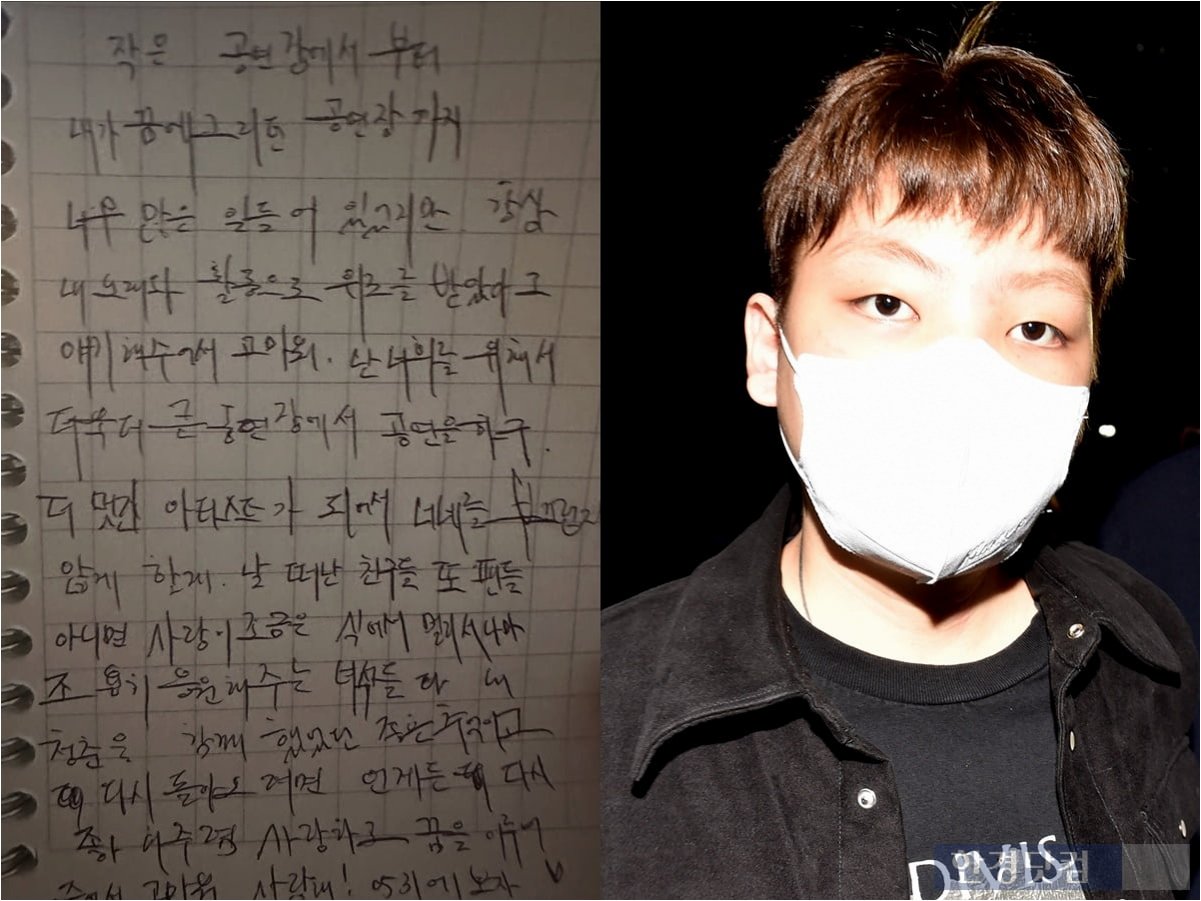 작은 공연장에서 부터
내가 꿈에그리던 공연장 까지
너무 많은 일들이 있었지만 항상
내 노래와 활동으로 위로를 받았다고
얘기해주어서 고마워. 난 너희를 위해서
더욱더 큰 공연장에서 공연을하구.
더 멋진 아티스트가 되어서 너네를
않게 할게. 날 떠난 친구들 또 팬들
아니면 사랑이 조금은 식어서 멀리서나마
조용히 응원해주는 녀석들 다 내
청춘을 함께 했었던 좋은추억이고
다시 돌아오려면 언제든 다시
좋아 해주고 사랑하고 꿈을 이루어
주어서 고마워 사랑해! 0531에 보자
DIVIS
한경닷컴